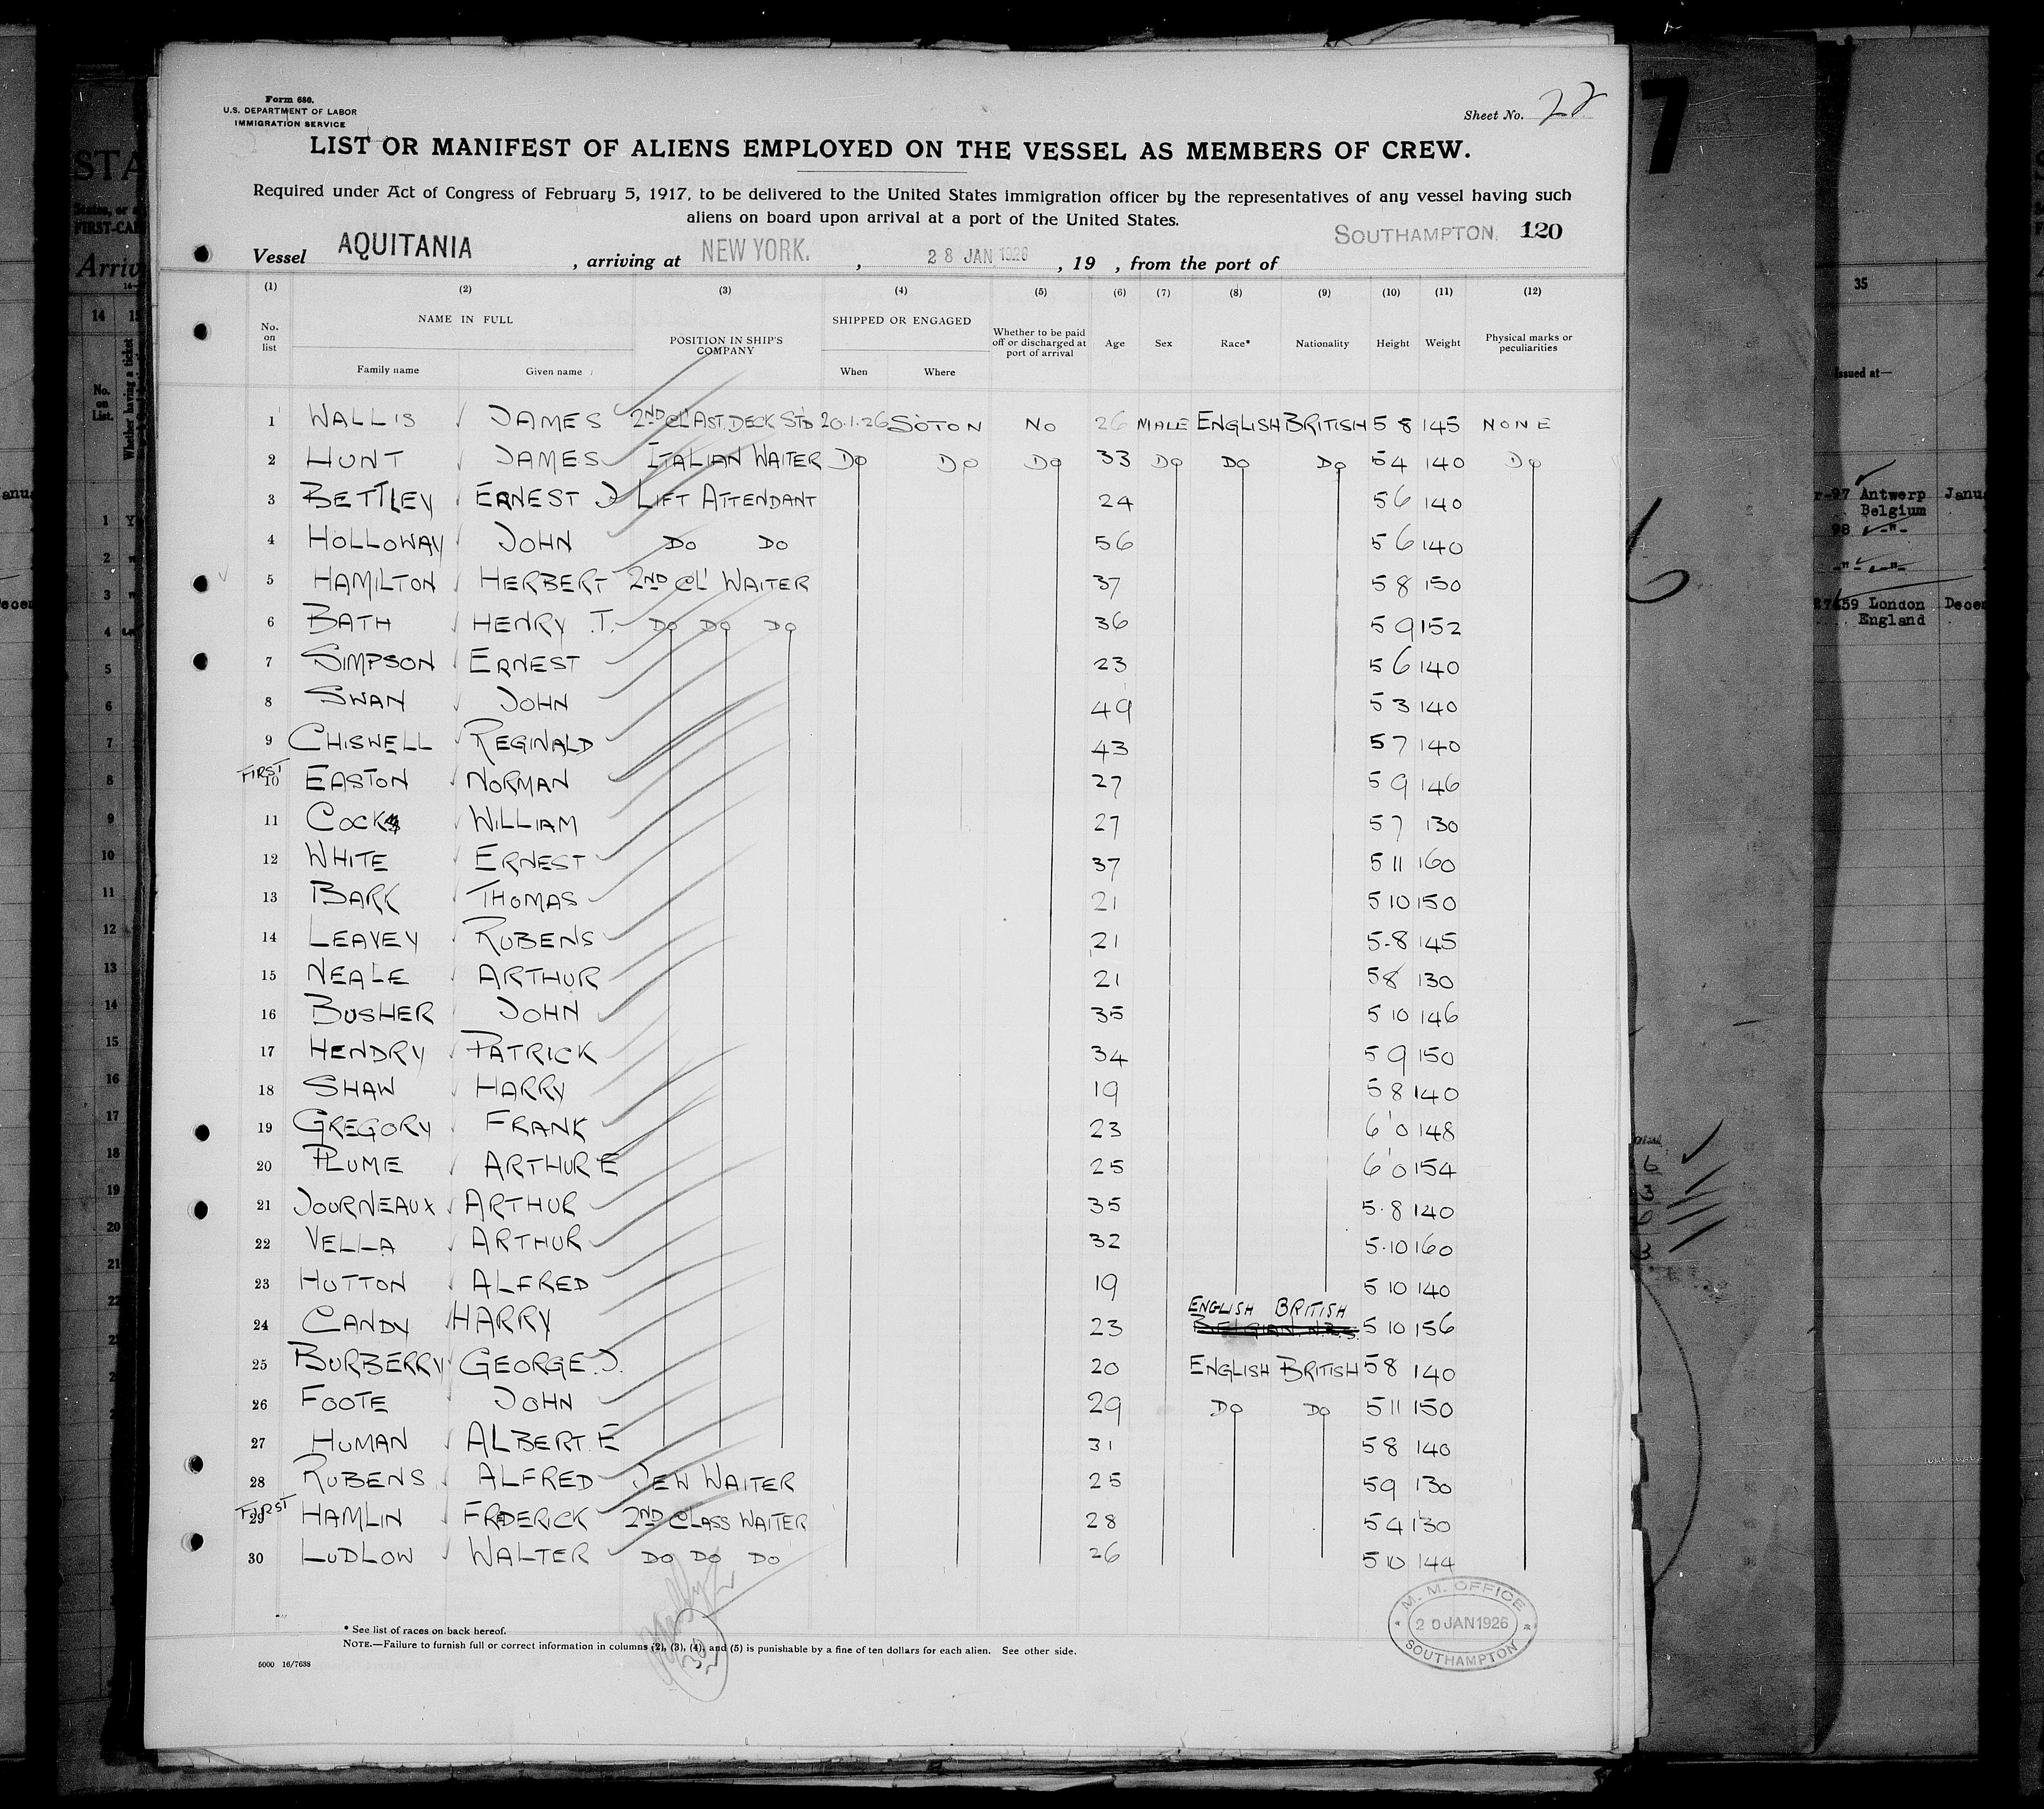 Form 680.
U.S. DEPARTMENT OF LABOR
IMMIGRATION SERVICE
Sheet No. 22
LIST OR MANIFEST OF ALIENS EMPLOYED ON THE VESSEL AS MEMBERS OF CREW.
Required under Act of Congress of February 5, 1917, to be delivered to the United States immigration officer by the representatives of any vessel having such
aliens on board upon arrival at a port of the United States.
Vessel AQUITANIA , arriving at NEW YORK. , 28 JAN 1926 , 19 , from the port of SOUTHAMPTON. 120
(1) (2) (3) (4) (5) (6) (7) (8) (9) (10) (11) (12)
No. on list NAME IN FULL POSITION IN SHIP'S COMPANY SHIPPED OR ENGAGED Whether to be paid off or discharged at port of arrival Age Sex Race* Nationality Height Weight Physical marks or peculiarities
Family name Given name When Where
1 WALLIS JAMES 2ND CL' AST. DECK STD 20.1.26 SOTON NO 26 MALE ENGLISH BRITISH 5 8 145 NONE
2 HUNT JAMES ITALIAN WAITER DO DO DO 33 DO DO DO 5 4 140 DO
3 BETTLEY ERNEST J LIFT ATTENDANT 24 5 6 140
4 HOLLOWAY JOHN DO DO 56 5 6 140
5 HAMILTON HERBERT 2ND CL' WAITER 37 5 8 150
6 BATH HENRY .T. DO DO DO 36 5 9 152
7 SIMPSON ERNEST 23 5 6 140
8 SWAN JOHN 49 5 3 140
9 CHISWELL REGINALD 43 5 7 140
FIRST 10 EASTON NORMAN 27 5 9 146
11 COCK WILLIAM 27 5 7 130
12 WHITE ERNEST 37 5 11 160
13 BARK THOMAS 21 5 10 150
14 LEAVEY RUBENS 21 5-8 145
15 NEALE ARTHUR 21 5 8 130
16 BUSHER JOHN 35 5 10 146
17 HENDRY PATRICK 34 5 9 150
18 SHAW HARRY 19 5 8 140
19 GREGORY FRANK 23 6'0 148
20 PLUME ARTHUR E 25 6'0 154
21 JOURNEAUX ARTHUR 35 5.8 140
22 VELLA ARTHUR 32 5.10 160
23 HUTTON ALFRED 19 5 10 140
ENGLISH BRITISH
24 CANDY HARRY 23 BELGIAN 5 10 156
25 BURBERRY GEORGE.J. 20 ENGLISH BRITISH 5 8 140
26 FOOTE JOHN 29 DO DO 5 11 150
27 HUMAN ALBERT. E 31 5 8 140
28 RUBENS ALFRED JEW WAITER 25 5 9 130
FIRST 29 HAMLIN FREDERICK 2ND CLASS WAITER 28 5 4 130
30 LUDLOW WALTER DO DO DO 26 5 10 144
* See list of races on back hereof.
NOTE.—Failure to furnish full or correct information in columns (2), (3), (4), and (5) is punishable by a fine of ten dollars for each alien. See other side.
5000 16/7638
30
M. M. OFFICE
20 JAN 1926
SOUTHAMPTON
STA
FIRST-CA
Arriv
14
No. on List.
Whether having a ticket
1
2
3
4
5
6
7
8
9
10
11
12
13
14
15
16
17
18
19
20
21
7
6
35
Issued at—
97 Antwerp
Belgium
98 -"-
-"- -"-
659 London
England